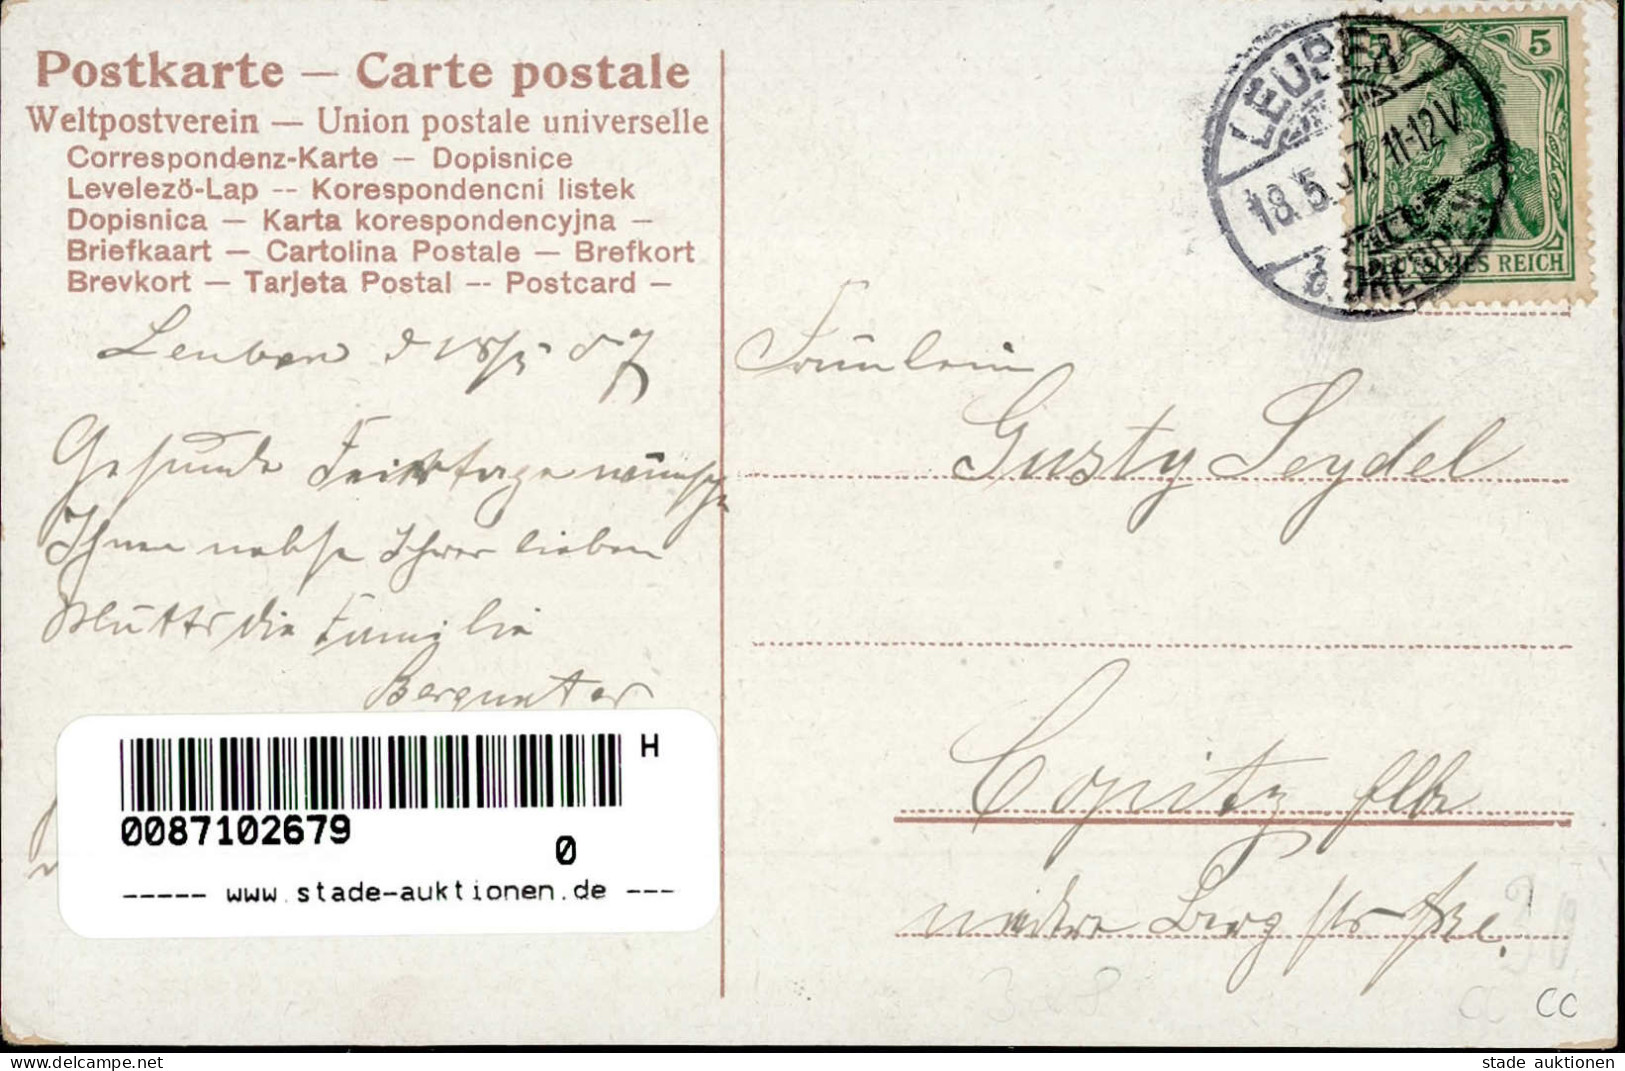 Postkarte — Carte postale
Weltpostverein — Union postale universelle
Correspondenz-Karte — Dopisnice
Levelező-Lap -- Korespondencni listek
Dopisnica — Karta korespondencyjna —
Briefkaart — Cartolina Postale — Brefkort
Brevkort — Tarjeta Postal -- Postcard —
Leuben d 18/5 07
Gesunde Feiertage wünscht
Ihnen nebst Ihrer lieben
Mutter die Familie
H
0087102679
0
----- www.stade-auktionen.de ---
LEUBEN
18.5.07. 11-12V.
b. DRESDEN
5
DEUTSCHES REICH
Fräulein
Gusty Seydel
Copitz Elbe
niedere Berg straße
CC
stade auktionen
https://www.delcampe.net